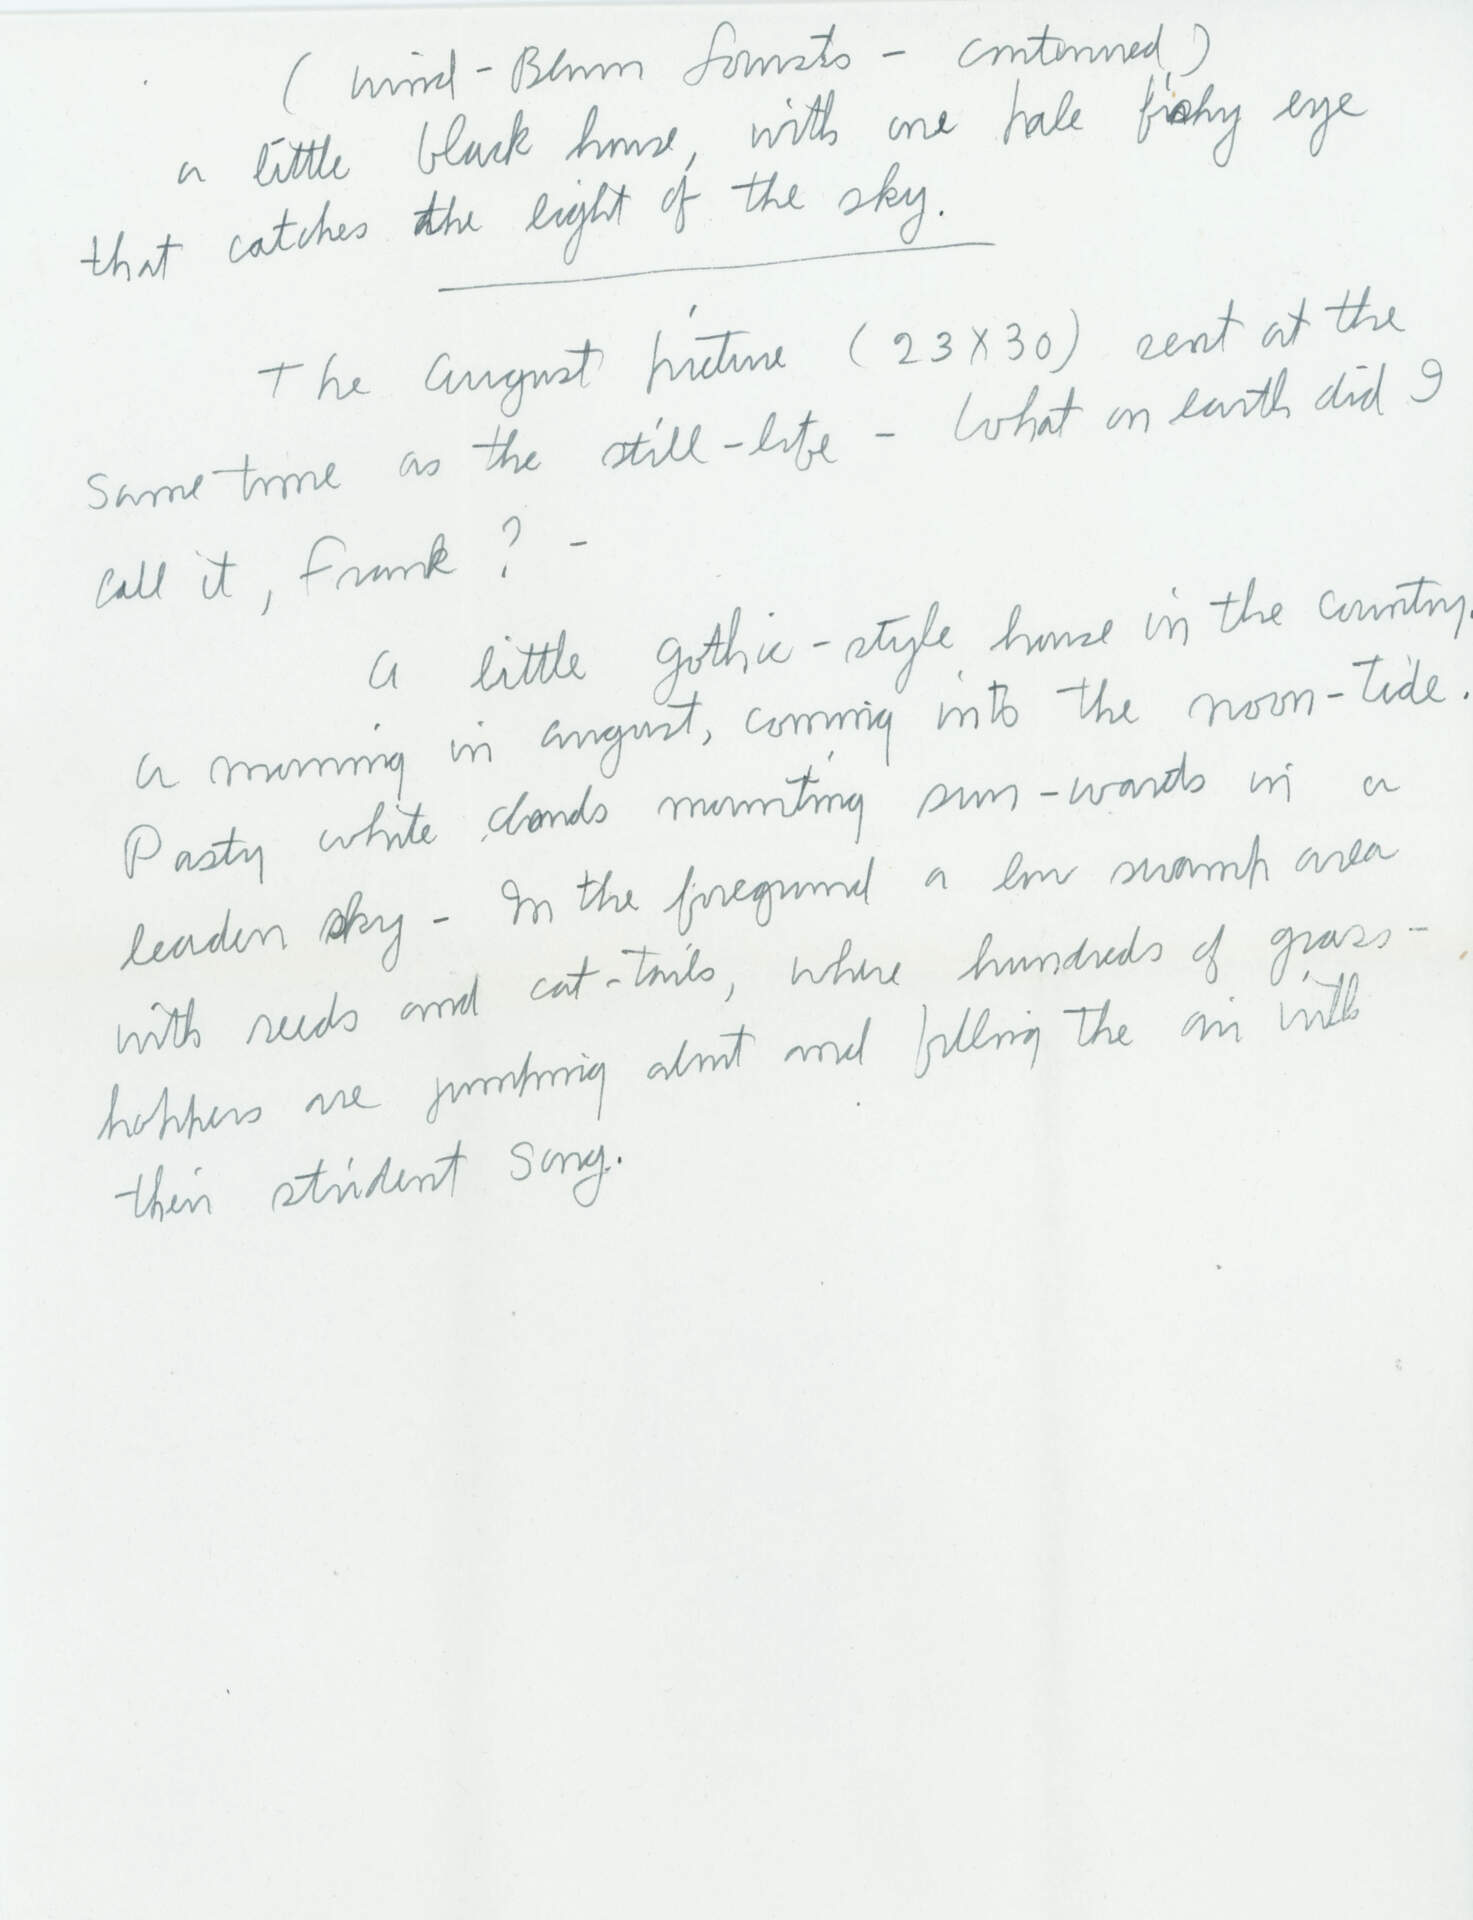 (Wind-Blown Forests - continued)
a little black house, with one pale fishy eye
that catches the light of the sky.
The August picture (23X30) sent at the
same time as the still-life - What on earth did I
call it, Frank? -
A little gothic-style house in the country.
A morning in August, coming into the noon-tide.
Pasty white clouds mounting sun-wards in a
leaden sky - In the foreground a low swamp area
with reeds and cat-tails, where hundreds of grass-
hoppers are jumping about and filling the air with
their strident song.